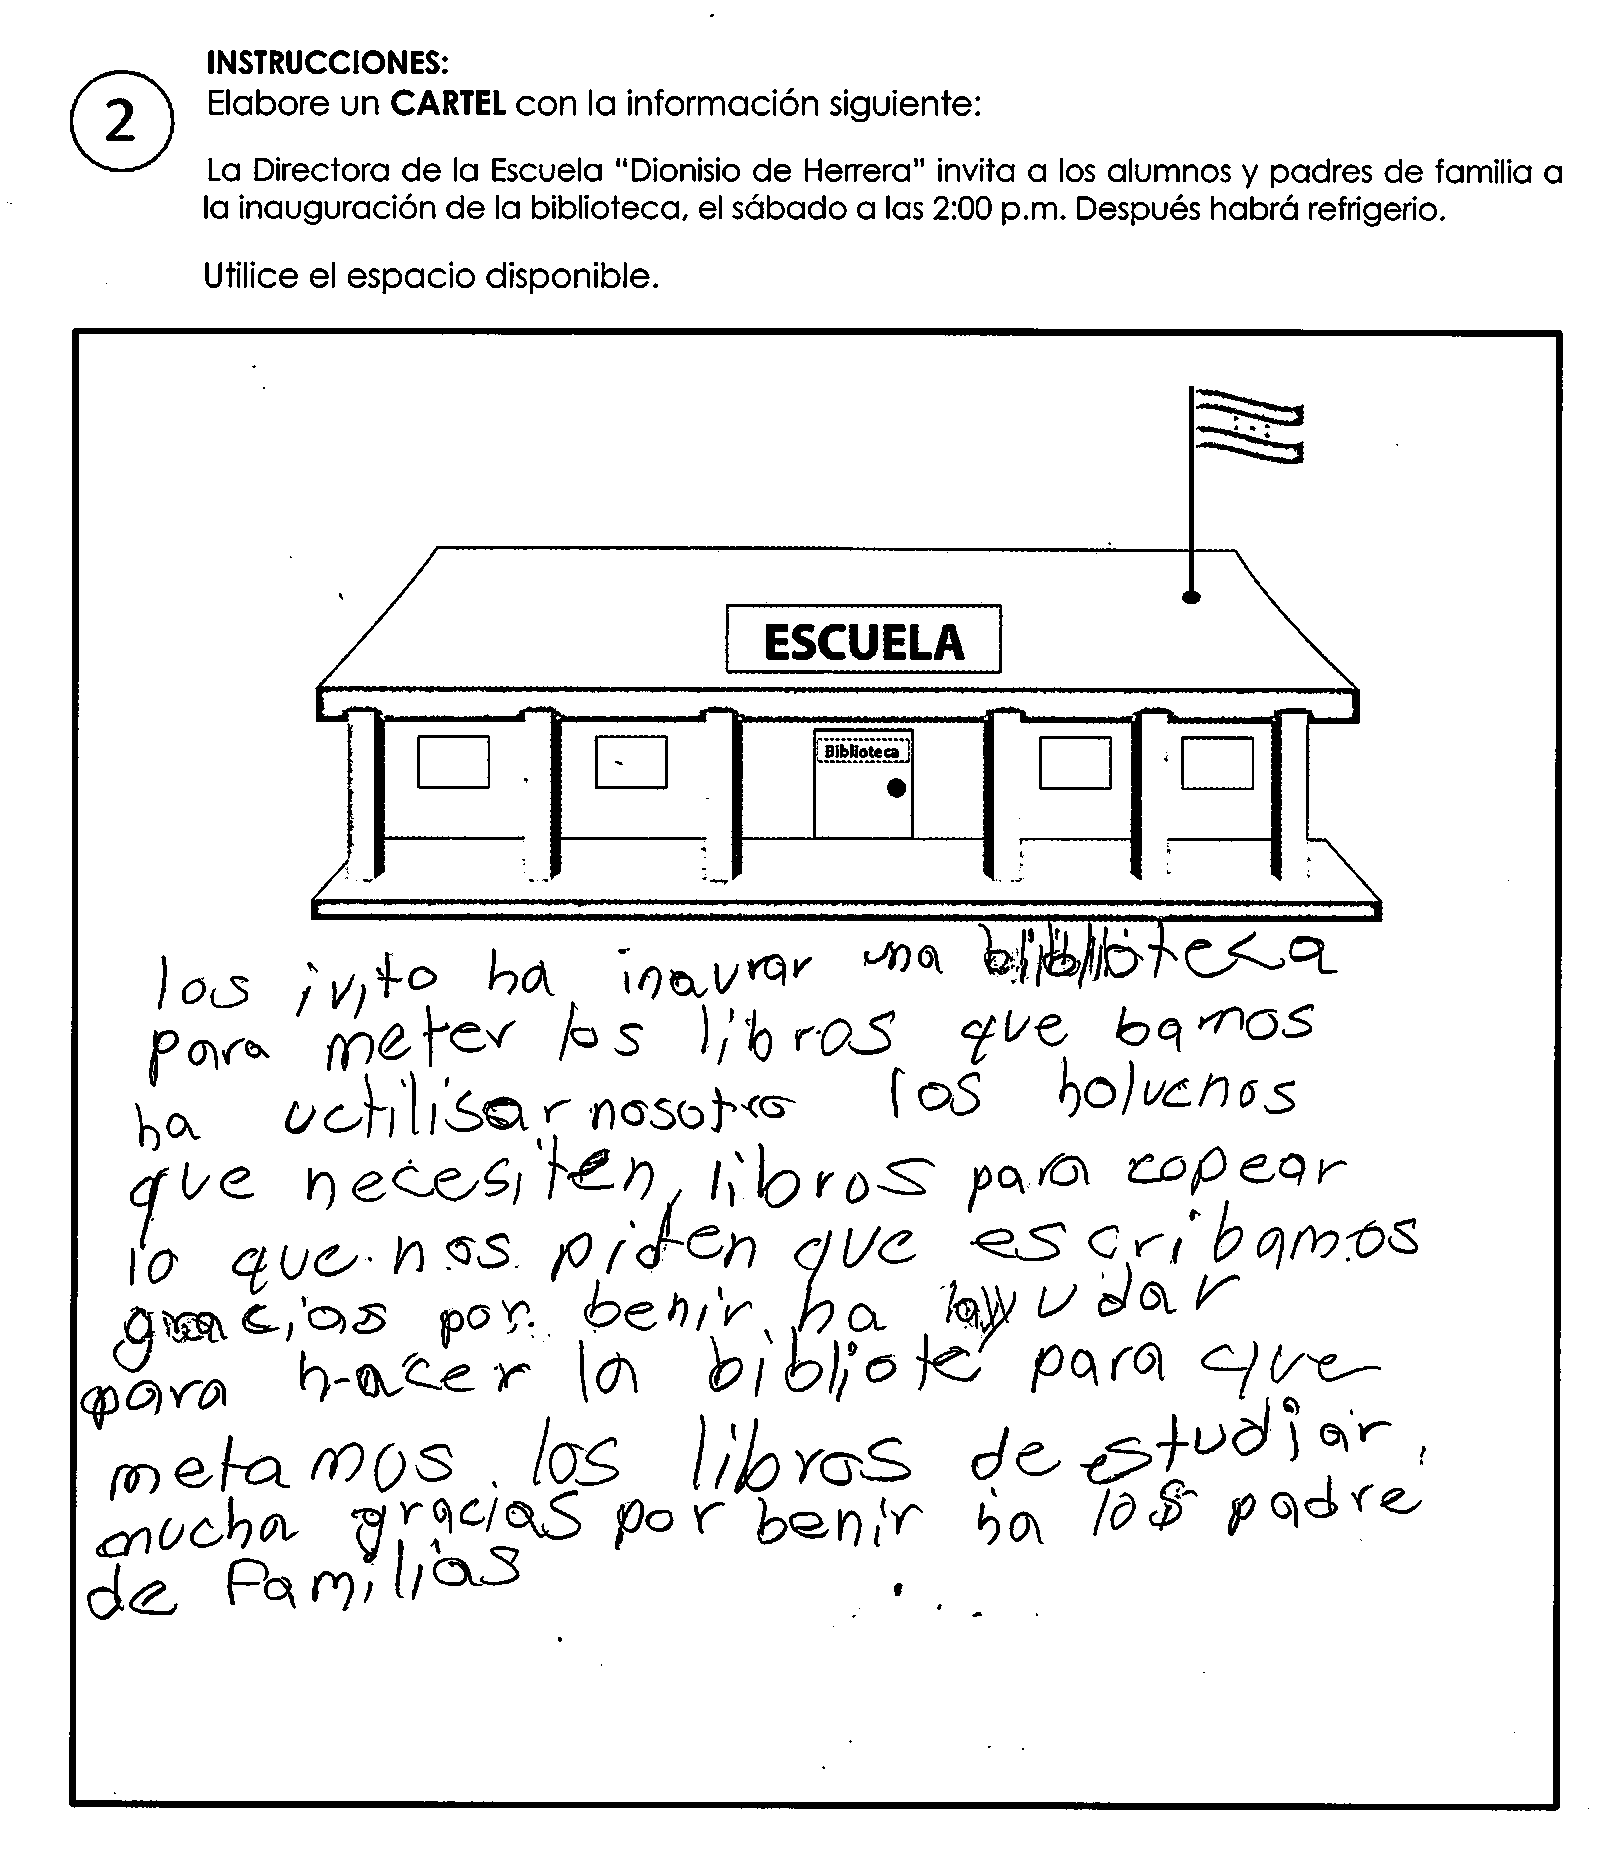 INSTRUCCIONES:
2
Elabore un CARTEL con la información siguiente:
La Directora de la Escuela "Dionisio de Herrera" invita a los alumnos y padres de familia a
la inauguración de la biblioteca, el sábado a las 2:00 p.m. Después habrá refrigerio.
Utilice el espacio disponible.
ESCUELA
Biblioteca
los ivito ha inaurar una biblioteca
para meter los libros que bamos
ha uctilisar nosotro los holuenos
que necesiten, libros para copear
lo que nos piden que escribamos
gracias por benir ha ayudar
para hacer la bibliote para que
metamos los libros de estudiar,
mucha gracias por benir ha los padre
de familias